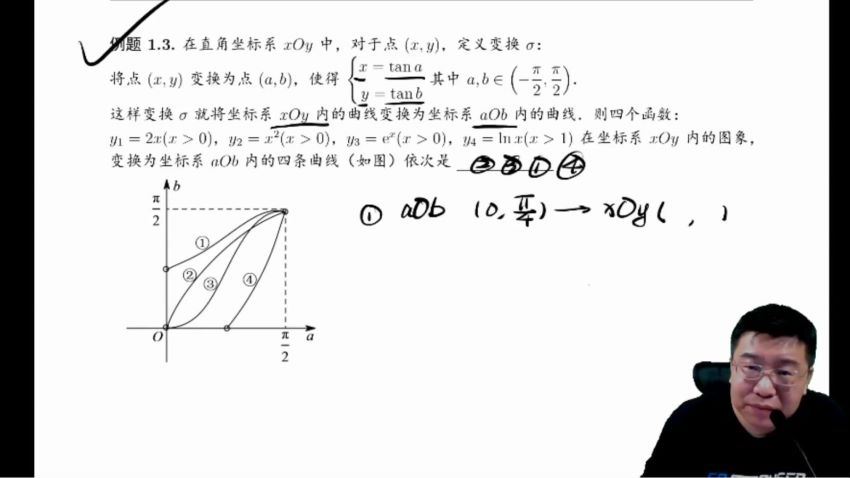 例题 1.3. 在直角坐标系 xOy 中，对于点 (x, y)，定义变换 σ:
将点 (x, y) 变换为点 (a, b)，使得 { x = tan a
y = tan b 其中 a, b ∈ (−π/2, π/2).
这样变换 σ 就将坐标系 xOy 内的曲线变换为坐标系 aOb 内的曲线. 则四个函数:
y₁ = 2x(x > 0)，y₂ = x²(x > 0)，y₃ = eˣ(x > 0)，y₄ = ln x(x > 1) 在坐标系 xOy 内的图象，
变换为坐标系 aOb 内的四条曲线（如图）依次是 ②③①④
① aOb (0, π/4) → xOy( , )
b
π/2
①
②
③
④
O
π/2
a